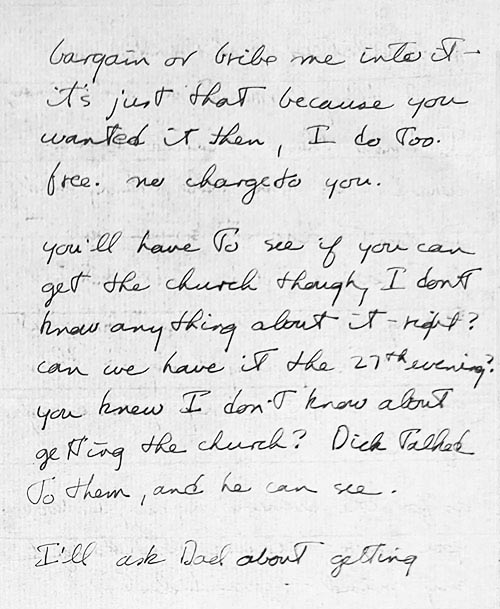 bargain or bribe me into it -
it's just that because you
wanted it then, I do too.
free. no charge to you.
you'll have to see if you can
get the church though, I don't
know anything about it - right?
can we have it the 27th evening?
you knew I don't know about
getting the church? Dick talked
to them, and he can see.
I'll ask Dad about getting